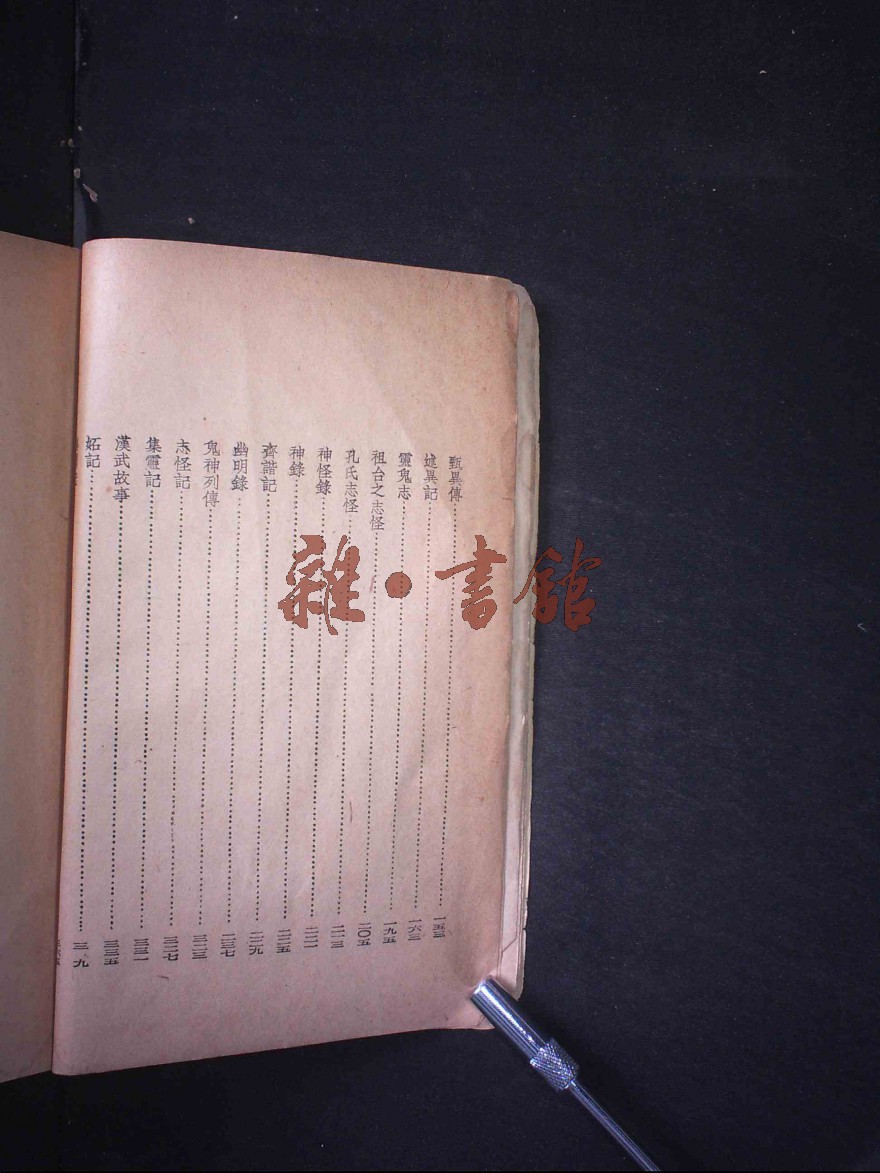 甄異傳……一五三
述異記……一六三
靈鬼志……一九五
祖台之志怪……二〇五
孔氏志怪……二一三
神怪錄……二二一
神錄……二二五
齊諧記……二二九
幽明錄……二三七
鬼神列傳……三二三
志怪記……三二七
集靈記……三三一
漢武故事……三三五
妬記……
雜·書館